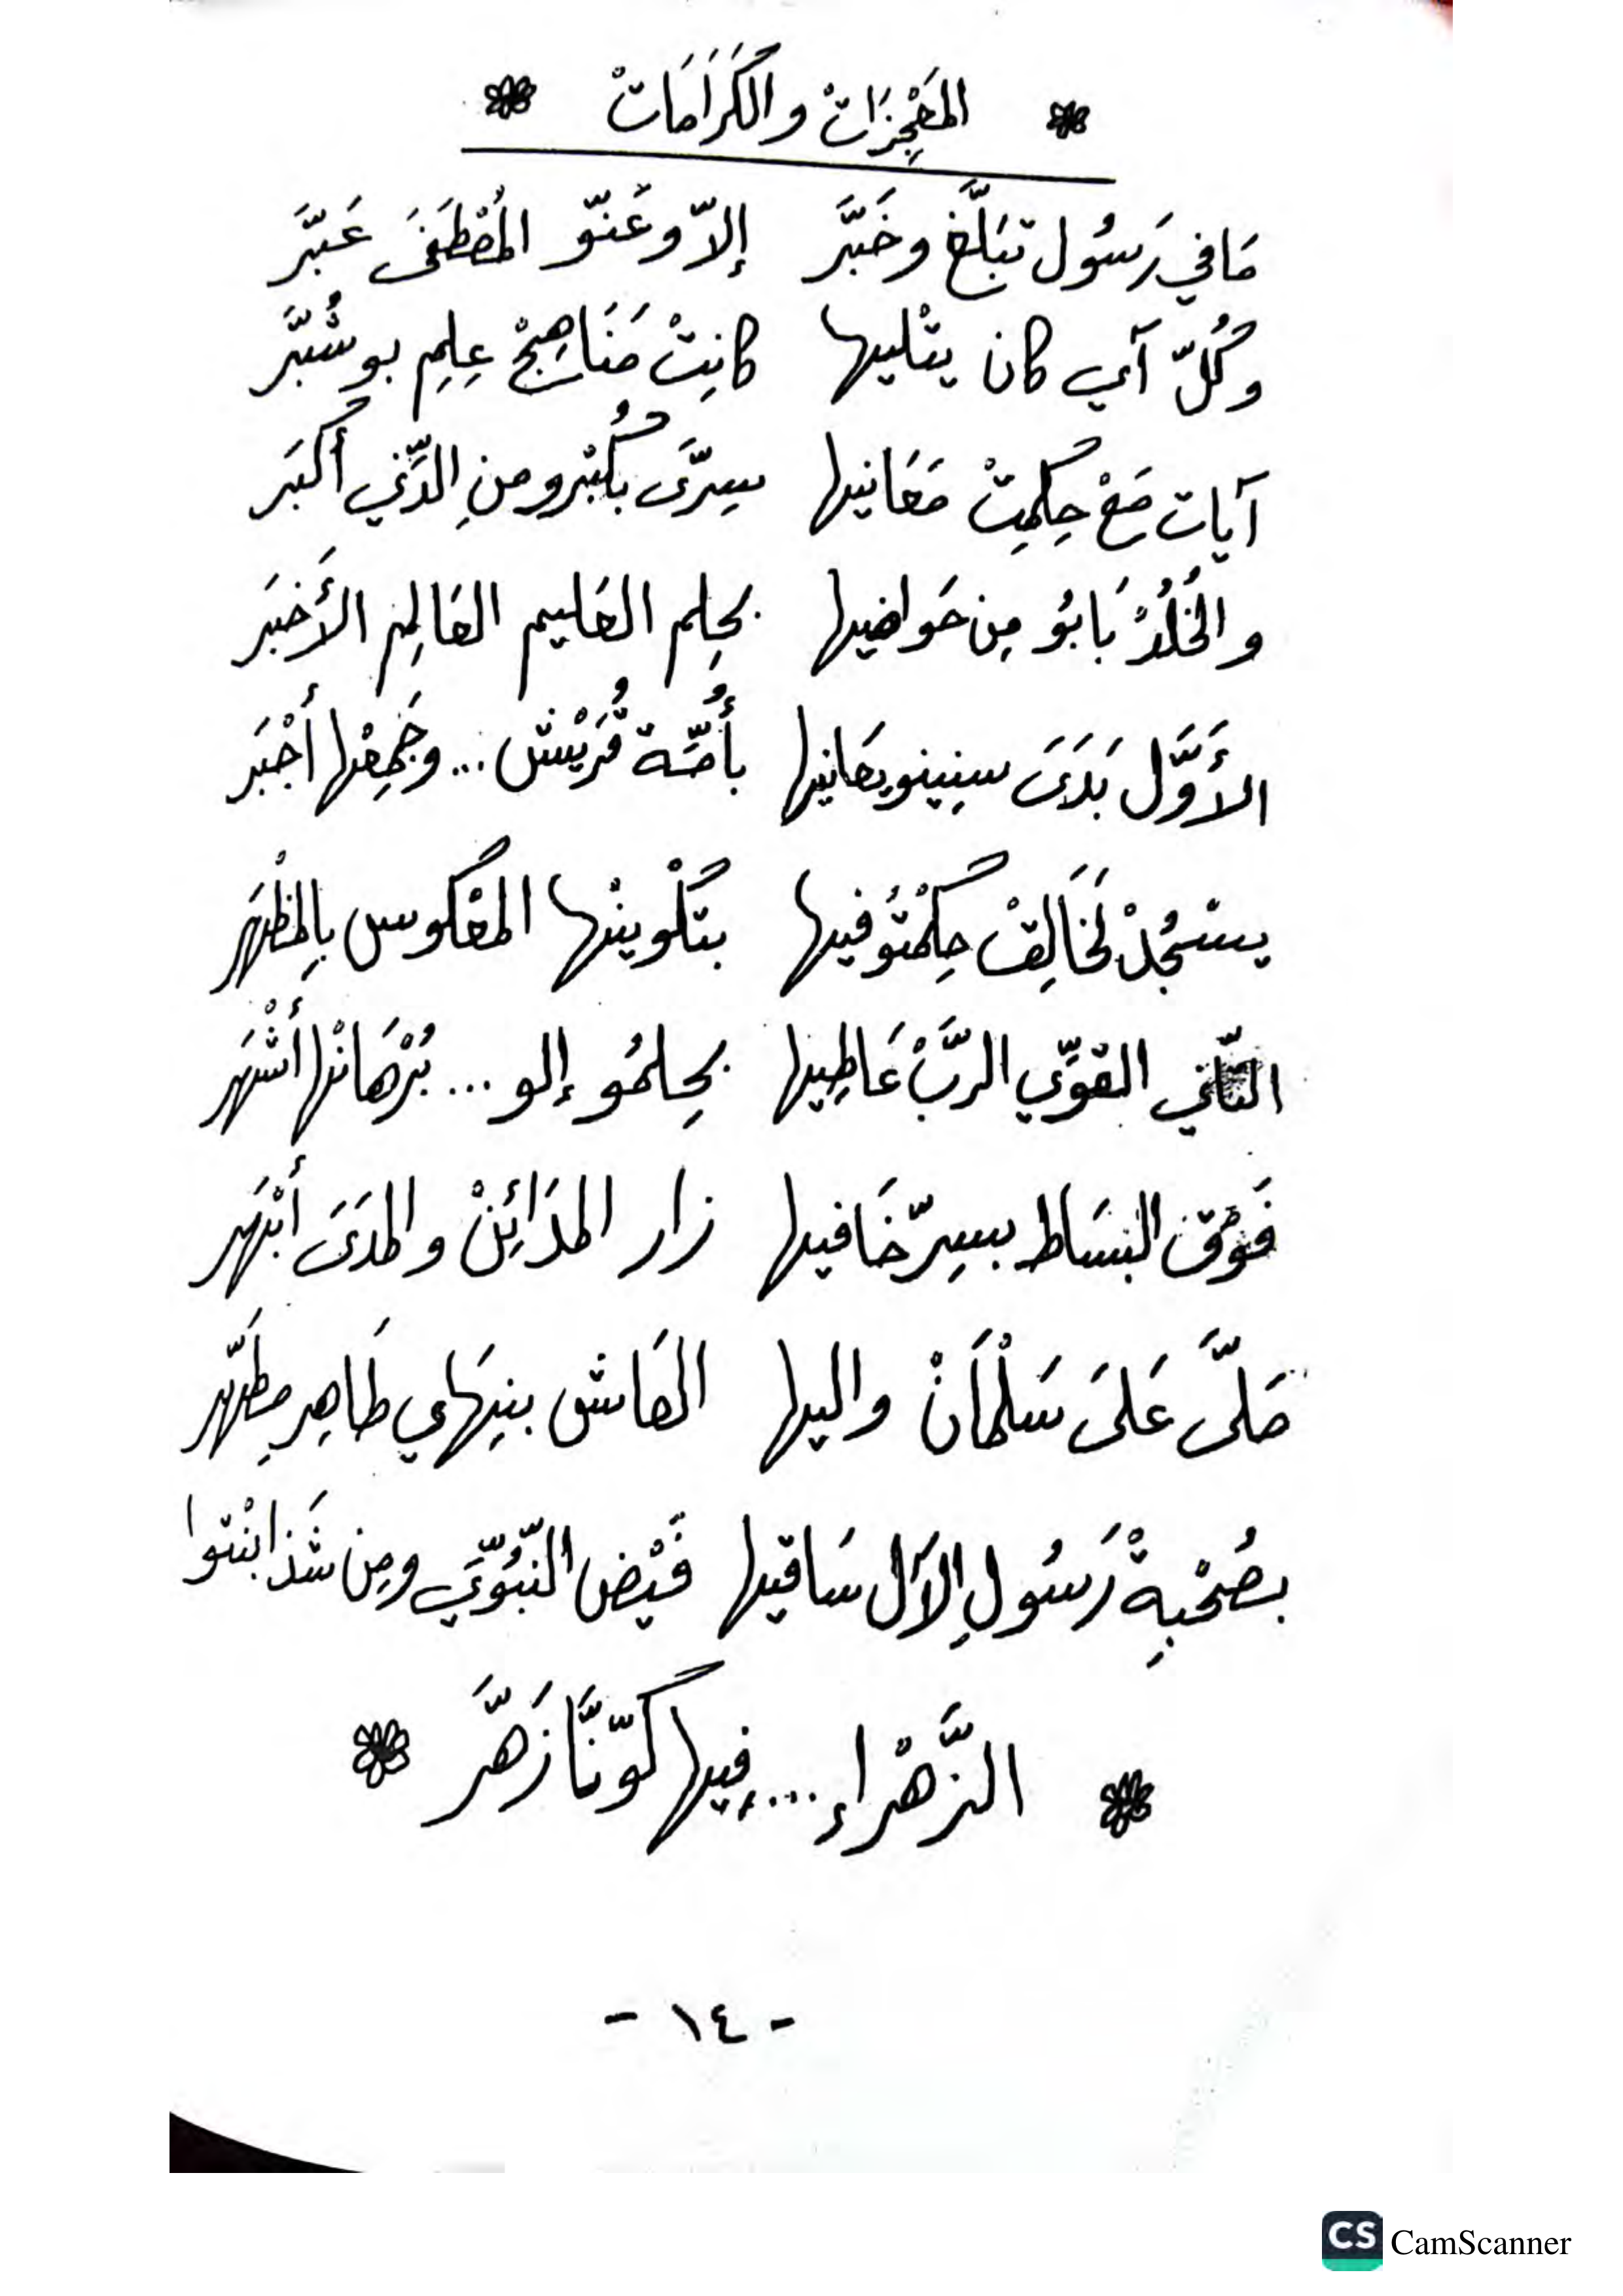 المَعْجِزَاتْ والكَرَامَاتْ
مَا في رَسُول تبَلَّغ وخَبَّرَ إلاّ وعَنّو المُصْطَفَىَ عَبّرَ
وكُلّ آي كان يتْليها كانِتْ مَنَاهِجْ عِلِم بو شُبَّر
آيات مَعْ حِكمِتْ مَعَانيها سِرّىَ بكُبْرو منِ الدِّني أكبَر
والخُلُدْ بَابُو مِن حَواضيها بحِلم العَليم العَالِم الأَخبَر
الأَوَّل بَدَىَ سنِينو يعَانيها بأُمِّة قُرَيْش ... وجَمِعْها أجْبَر
يسْجُدْ لَخَالِقْ حِكمْتُو فيها بتَكْوينْها المعْكوس بِالمظْهَر
التّاني القوِّي الرَّبْ عَاطِيها بحِلمُو إلو ... بُرْهَانْها أشْهَر
فَوْق البسَاط بسِرّ خَافيها زار المدَائِنْ والمدَىَ أبْهَر
صَلَّىَ عَلىَ سَلْمَانْ واليها العَاش بنِهَاي طَاهِر مطَهّر
بصُحْبِةْ رَسُولِ الآل سَاقيها فَيْض النّبُوِّي ومِن شَذا ابنْتوا
الزَّهْراء ... فِيها كَوّنَّا زَهَّر
- ١٤ -
CS CamScanner